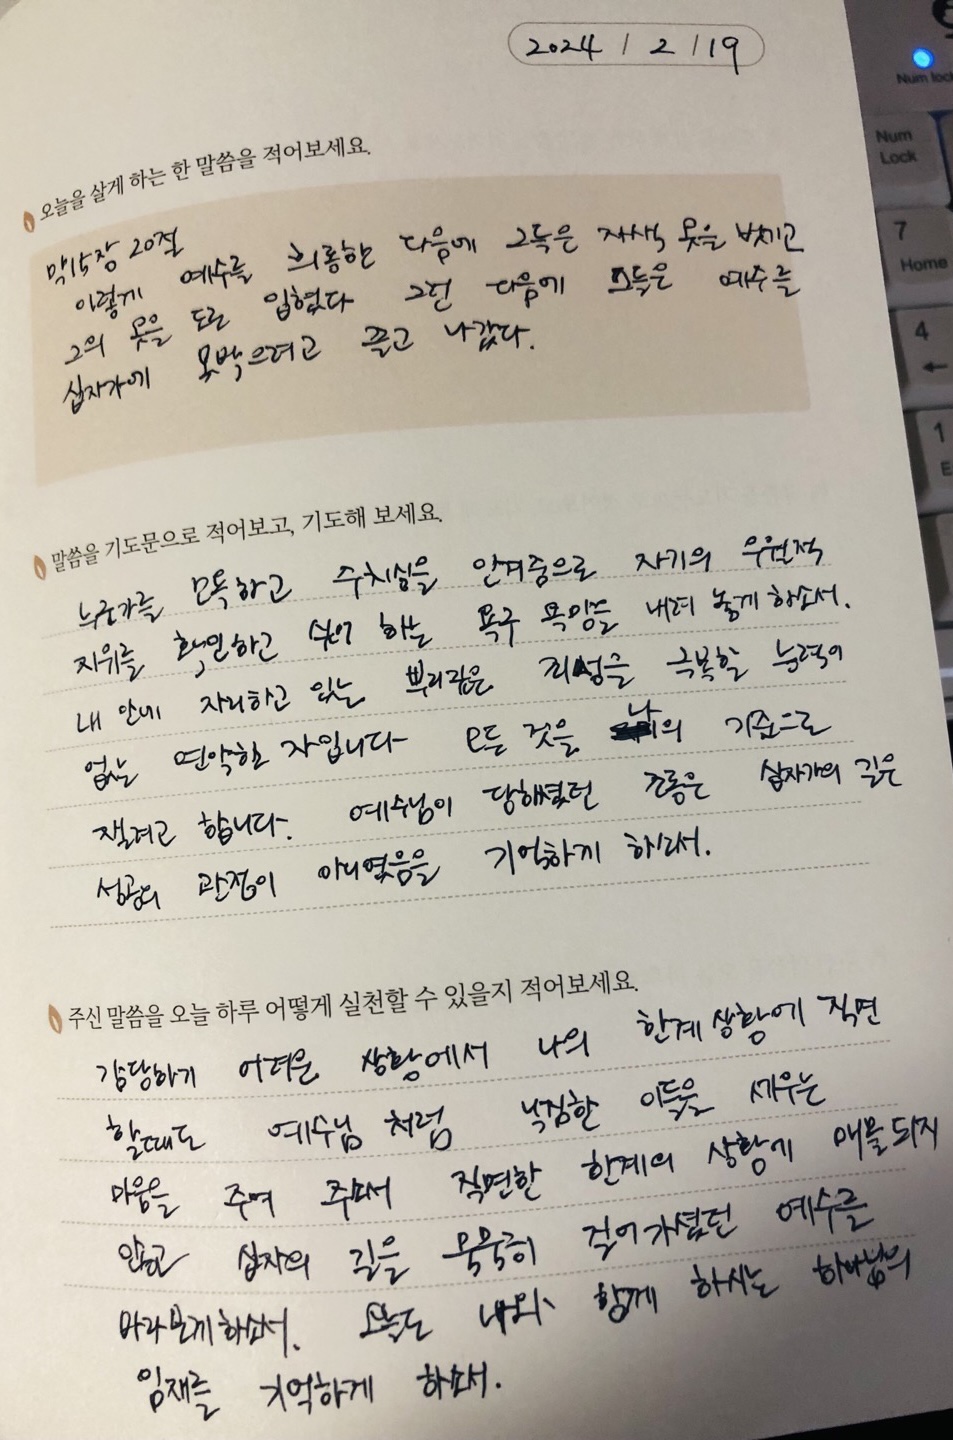 2024 / 2 / 19
오늘을 살게 하는 한 말씀을 적어보세요.
막15장 20절
이렇게 예수를 희롱한 다음에 그들은 자색 옷을 벗기고
그의 옷을 도로 입혔다 그런 다음에 그들은 예수를
십자가에 못박으려고 끌고 나갔다.
말씀을 기도문으로 적어보고, 기도해 보세요.
누군가를 모독하고 수치심을 안겨줌으로 자기의 우월적
지위를 확인하고 싶어 하는 욕구 욕망들 내려 놓게 하소서.
내 안에 자리하고 있는 뿌리깊은 죄성을 극복할 능력이
없는 연약한 자입니다 모든 것을 나의 기준으로
잴려고 합니다. 예수님이 당해셨던 조롱은 십자가의 길은
성공의 관점이 아니였음을 기억하게 하소서.
주신 말씀을 오늘 하루 어떻게 실천할 수 있을지 적어보세요.
감당하기 어려운 상황에서 나의 한계 상황에 직면
할때도 예수님 처럼 낙심한 이들을 세우는
마음을 주여 주소서 직면한 한계의 상황에 매몰되지
않고 십자의 길을 묵묵히 걸어가셨던 예수를
바라보게하소서. 오늘도 나와 함께 하시는 하나님의
임재를 기억하게 하소서.
Num lock
Num
Lock
7
Home
4
←
1